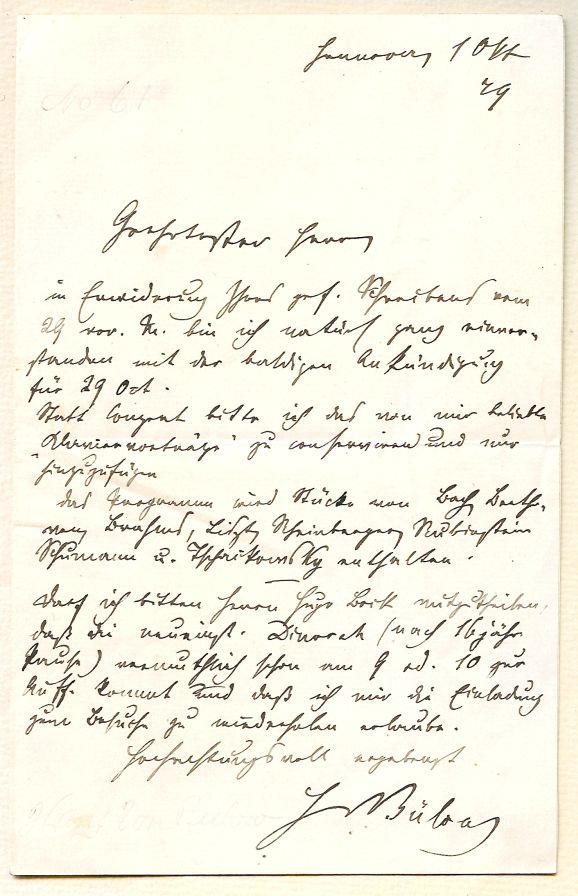 Hannover, 1 Okt
79
No 61
Geehrtester Herr,
in Erwiderung Ihres gef. Schreibens vom
29 vor. M. bin ich natürl ganz einver-
standen mit der baldigen Ankündigung
für 29 Oct.
Statt Conzert bitte ich das von mir beliebte
"Klaviervorträge" zu conserviren und nur
hinzuzufügen
das Programm wird Stücke von Bach, Beetho-
ven, Brahms, Liszt, Rheinberger, Rubinstein
Schumann u. Tschaikowsky enthalten.
Darf ich bitten Herrn Hugo Bock mitzutheilen,
daß die Dinorah (nach 16jähr
Pause) vermuthlich schon am 9 od. 10 zur
Auff. kommt und daß ich mir die Einladung
zum Besuche zu wiederholen erlaube.
Hochachtungsvoll ergebenst
H v Bülow